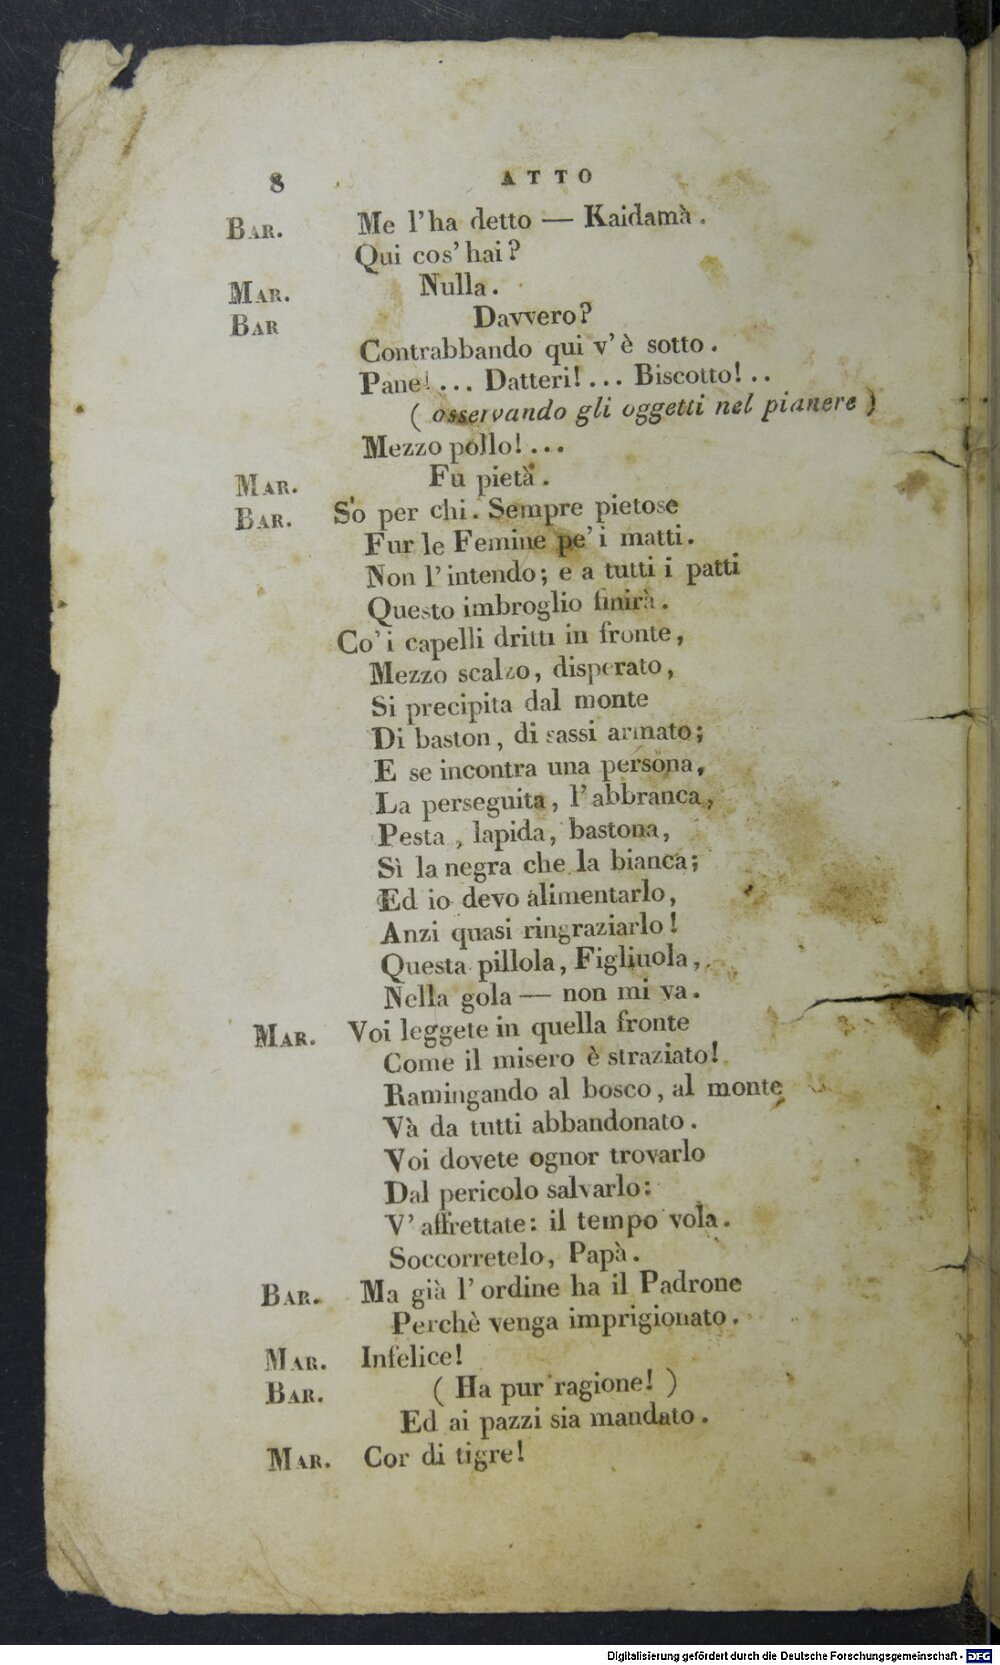 8 ATTO
BAR. Me l'ha detto — Kaidamà.
Qui cos' hai?
MAR. Nulla.
BAR Davvero?
Contrabbando qui v' è sotto.
Pane!... Datteri!... Biscotto!..
( osservando gli oggetti nel pianere )
Mezzo pollo!...
MAR. Fu pietà.
BAR. So per chi. Sempre pietose
Fur le Femine pe' i matti.
Non l' intendo; e a tutti i patti
Questo imbroglio finirà.
Co' i capelli dritti in fronte,
Mezzo scalzo, disperato,
Si precipita dal monte
Di baston, di sassi armato;
E se incontra una persona,
La perseguita, l' abbranca,
Pesta, lapida, bastona,
Sì la negra che la bianca;
Ed io devo alimentarlo,
Anzi quasi ringraziarlo!
Questa pillola, Figliuola,
Nella gola — non mi va.
MAR. Voi leggete in quella fronte
Come il misero è straziato!
Ramingando al bosco, al monte
Và da tutti abbandonato.
Voi dovete ognor trovarlo
Dal pericolo salvarlo:
V' affrettate: il tempo vola.
Soccorretelo, Papà.
BAR. Ma già l' ordine ha il Padrone
Perchè venga imprigionato.
MAR. Infelice!
BAR. ( Ha pur ragione! )
Ed ai pazzi sia mandato.
MAR. Cor di tigre!
Digitalisierung gefördert durch die Deutsche Forschungsgemeinschaft - DFG